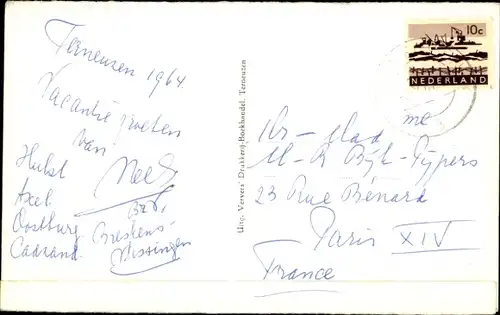 Terneuzen 1964
Vacantie groeten
van
Hulst
Axel
Oostburg
Cadzand
Breskens
Vlissingen
Uitg. Ververs' Drukkerij-Boekhandel, Terneuzen
10c
NEDERLAND
me
23 Rue Bénard
Paris XIV
France